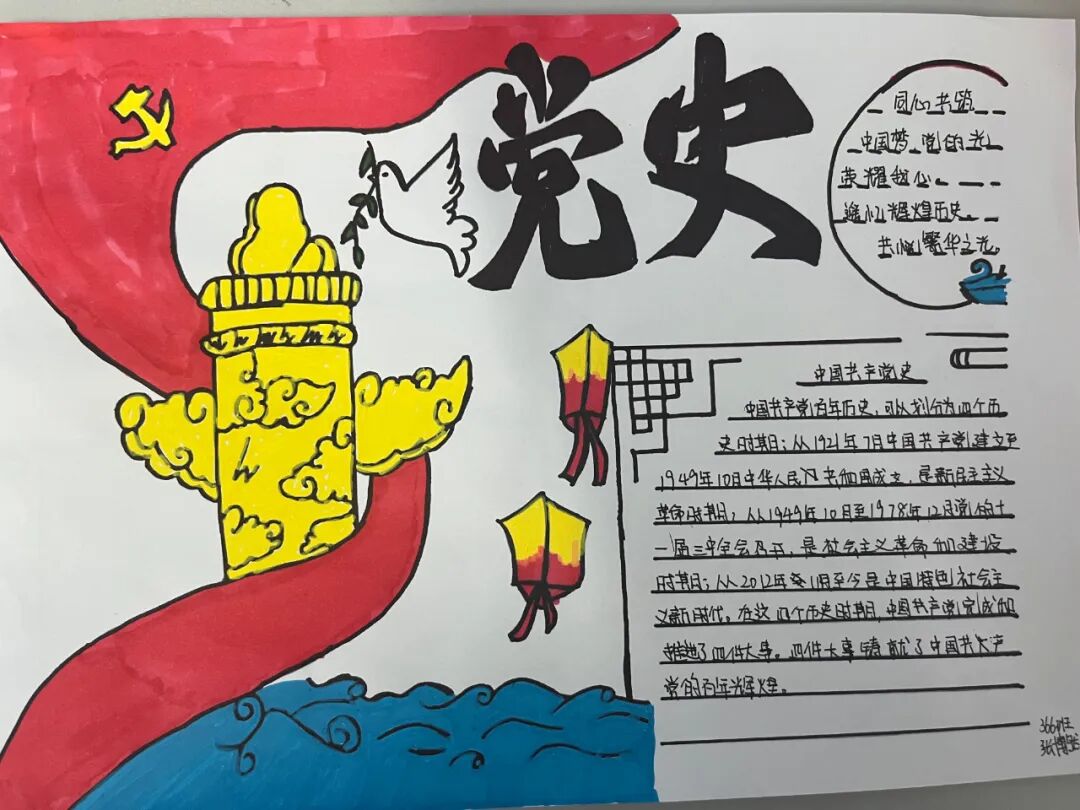 党史
同心共筑
中国梦 党的光
荣耀我心。
逾心辉煌历史。
共 繁华之光。
中国共产党史
中国共产党百年历史,可以划分为四个历
史时期:从1921年7月中国共产党建立至
1949年10月中华人民 共和国成立,是新民主主义
革命时期;从1949年10月至1978年12月党的十
一届三中全会召开,是社会主义革命和建设
时期;从2012年 11月至今是中国特色社会主
义新时代。在这四个历史时期,中国共产党完成和
推进了四件大事。四件大事铸就了中国共产
党的百年辉煌。
366班
张博